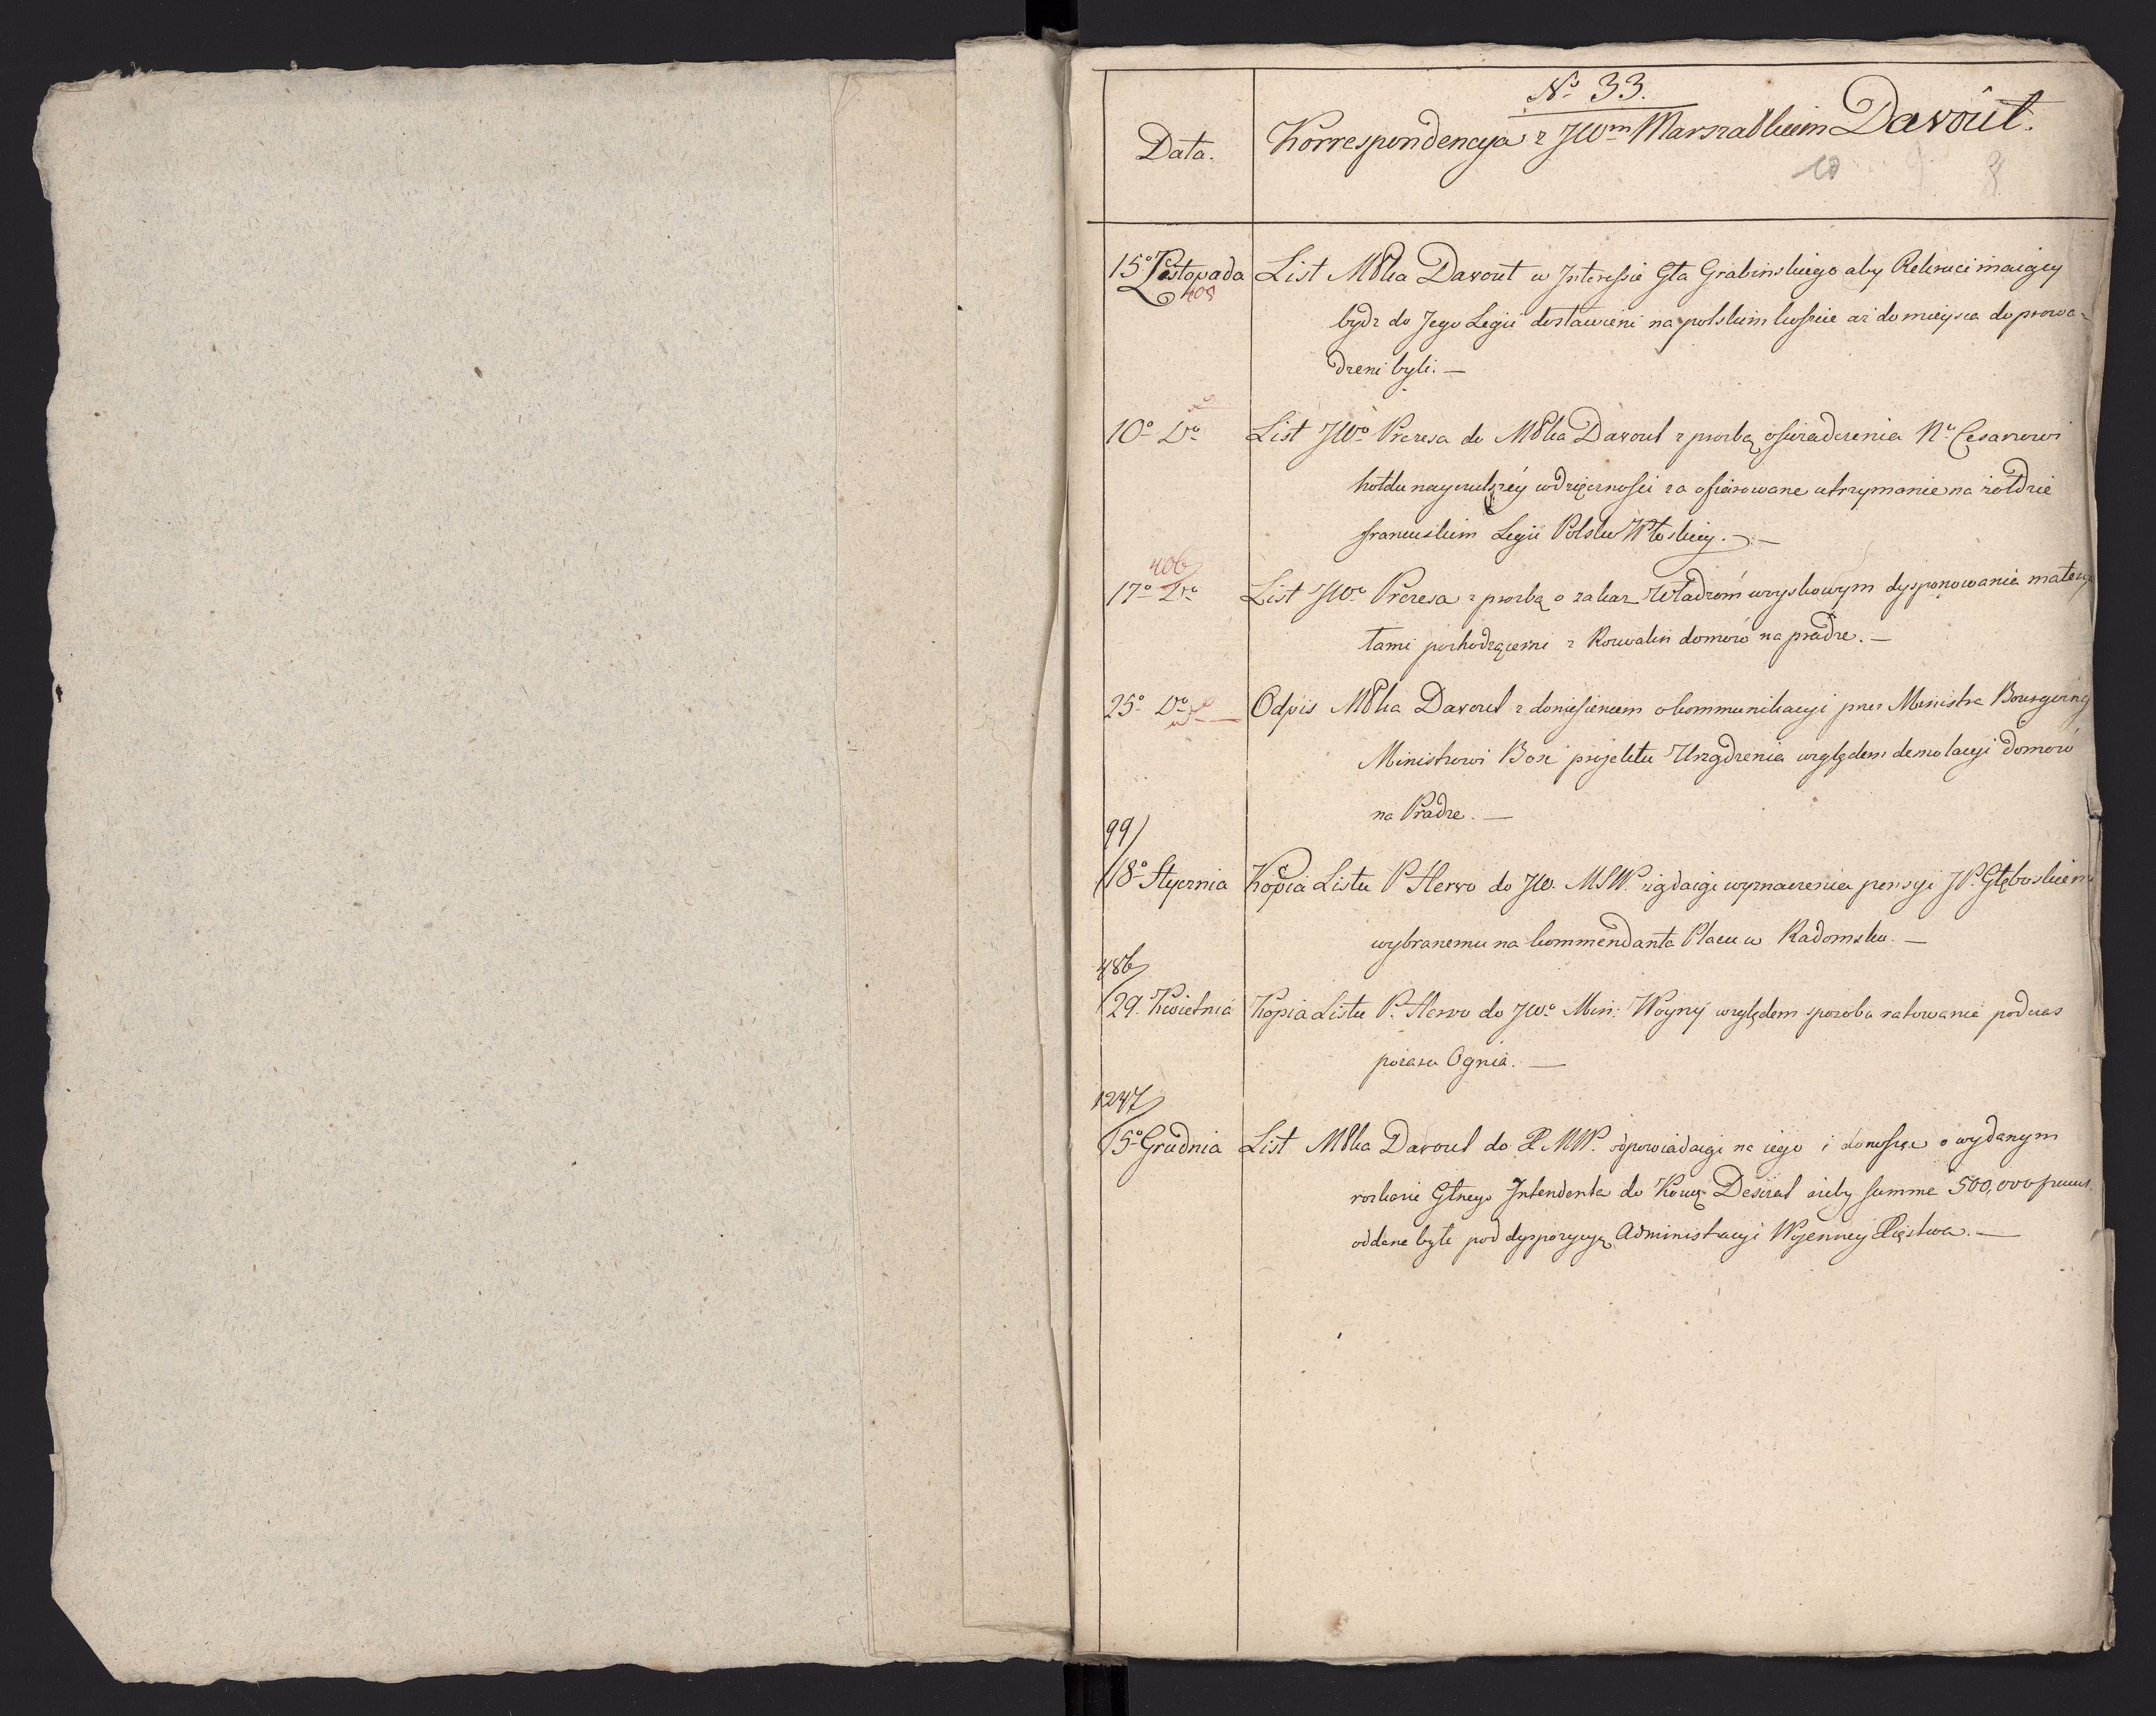 No 33.
Data. Korrespondencya z JWm Marszałkiem Davout.
10 8
15o Listopada List Młka Davout w Interessie Gła Grabinskiego aby Rekruci maiący
408
bydz do Jego Legii dostawieni na polskim koszcie aż do mieysca doprowa-
dzeni byli. —
10o Do List JWo Prezesa do Młka Davout z prozbą oświadczenia No Cesarowi
hołdu nayczulszéy wdzięcznośći za ofiarowane utrzymanie na żołdzie
francuskim Legii Polsko Włoskiey. —
406
17o Do List JWo Prezesa z prozbą o zakaz Władzom woyskowym dysponowania materya
łami pochodzącemi z Rozwalin domow na pradze. —
25o Do Odpis Młka Davout z doniesieniem o kommunikacyi przez Ministra Bourgoing
Ministrowi Bose projektu Urządzenia względem demolacyi domow
na Pradze. —
99
18o Stycznia Kopia Listu P. Hervo do JW. MSW. żądaiąc wyznaczenia pensyi JP. Głębockiemu
wybranemu na kommendanta Placu w Radomsku. —
486
29. Kwietnia Kopia Listu P. Hervo do JWo Min: Woyny względem sposobu ratowania podczas
pożaru Ognia. —
1247
15o Grudnia List Młka Davout do X. MW. odpowiadaiąc na iego i donosząc o wydanym
rozkazie Głnego Intendenta do Desirat ażeby summa 500,000
oddana była pod dyspozycyą Administracyi Wojenney Xięstwa. —